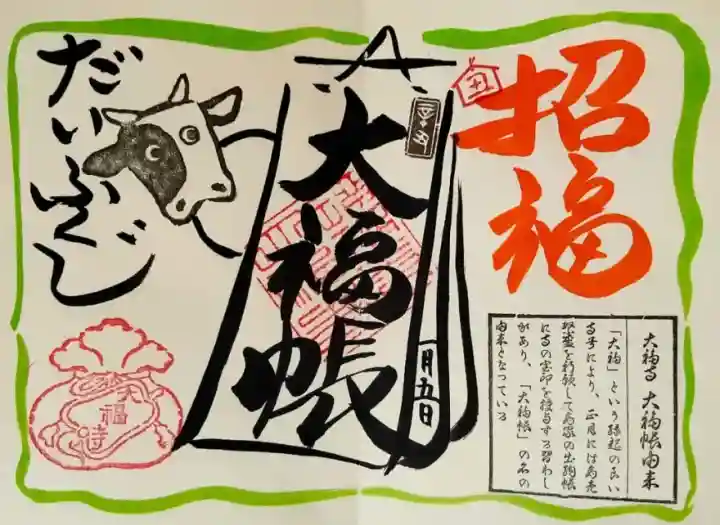 招福
丑
大福帳
一月五日
だいふくじ
大福寺
大福寺 大福帳由来
「大福」という縁起の良い
寺号により、正月には商売
繁盛を祈願して商家の出納帳
に寺の宝印を授与する習わし
があり、「大福帳」の名の
由来となっている